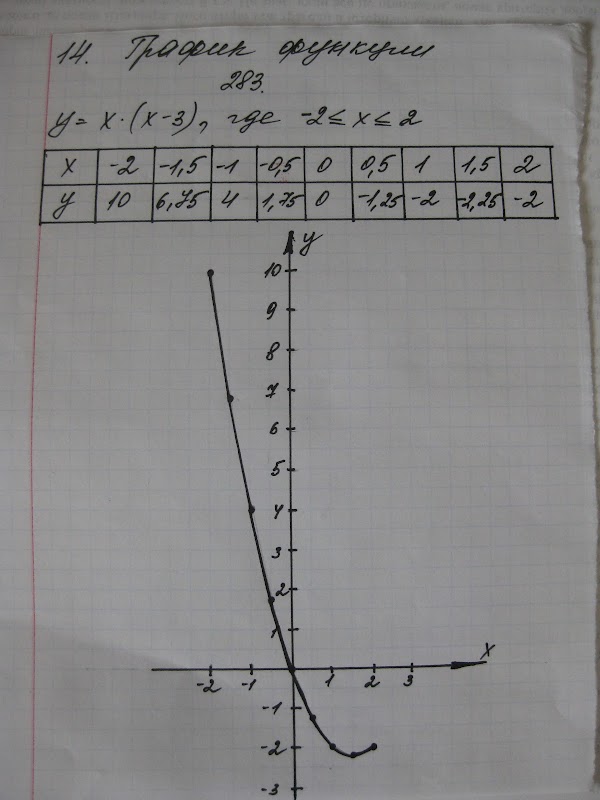 14. График функции
283.
y = x·(x-3), где -2 ≤ x ≤ 2
x -2 -1,5 -1 -0,5 0 0,5 1 1,5 2
y 10 6,75 4 1,75 0 -1,25 -2 -2,25 -2
y
10
9
8
7
6
5
4
3
2
1
x
-2 -1 1 2 3
-1
-2
-3